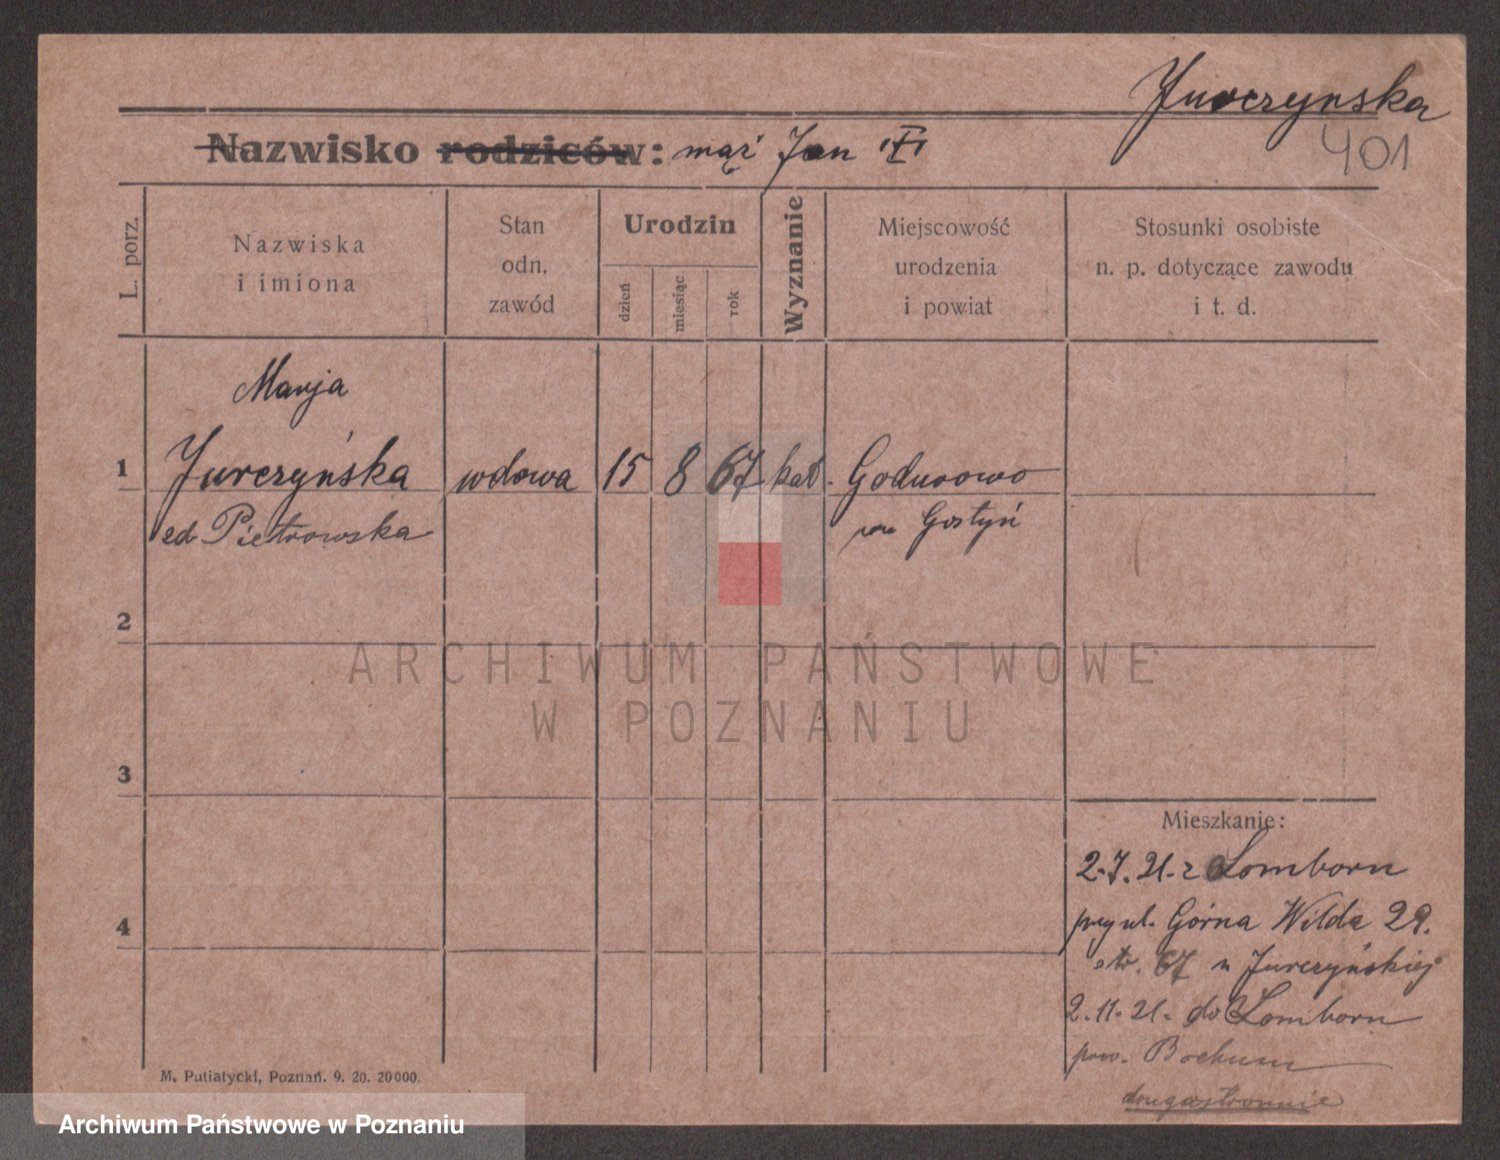 Jurczynska
401
Nazwisko rodziców: mąż Jan "I"
L. porz.
Nazwiska
i imiona
Stan
odn.
zawód
Urodzin
dzień
miesiąc
rok
Wyznanie
Miejscowość
urodzenia
i powiat
Stosunki osobiste
n. p. dotyczące zawodu
i t. d.
Marja
1 Jurczyńska wdowa 15 8 67 kat. Godurowo
ed Pietrowska
Gostyń
2
3
4
ARCHIWUM PAŃSTWOWE
W POZNANIU
Mieszkanie:
2.7.21. z Lomborn
przy ul. Górna Wilda 29.
str. 67 u Jurczyńskiej
2.11.21. do Lomborn
pow. Bochum
M. Putiatycki, Poznań. 9. 20. 20000.
Archiwum Państwowe w Poznaniu